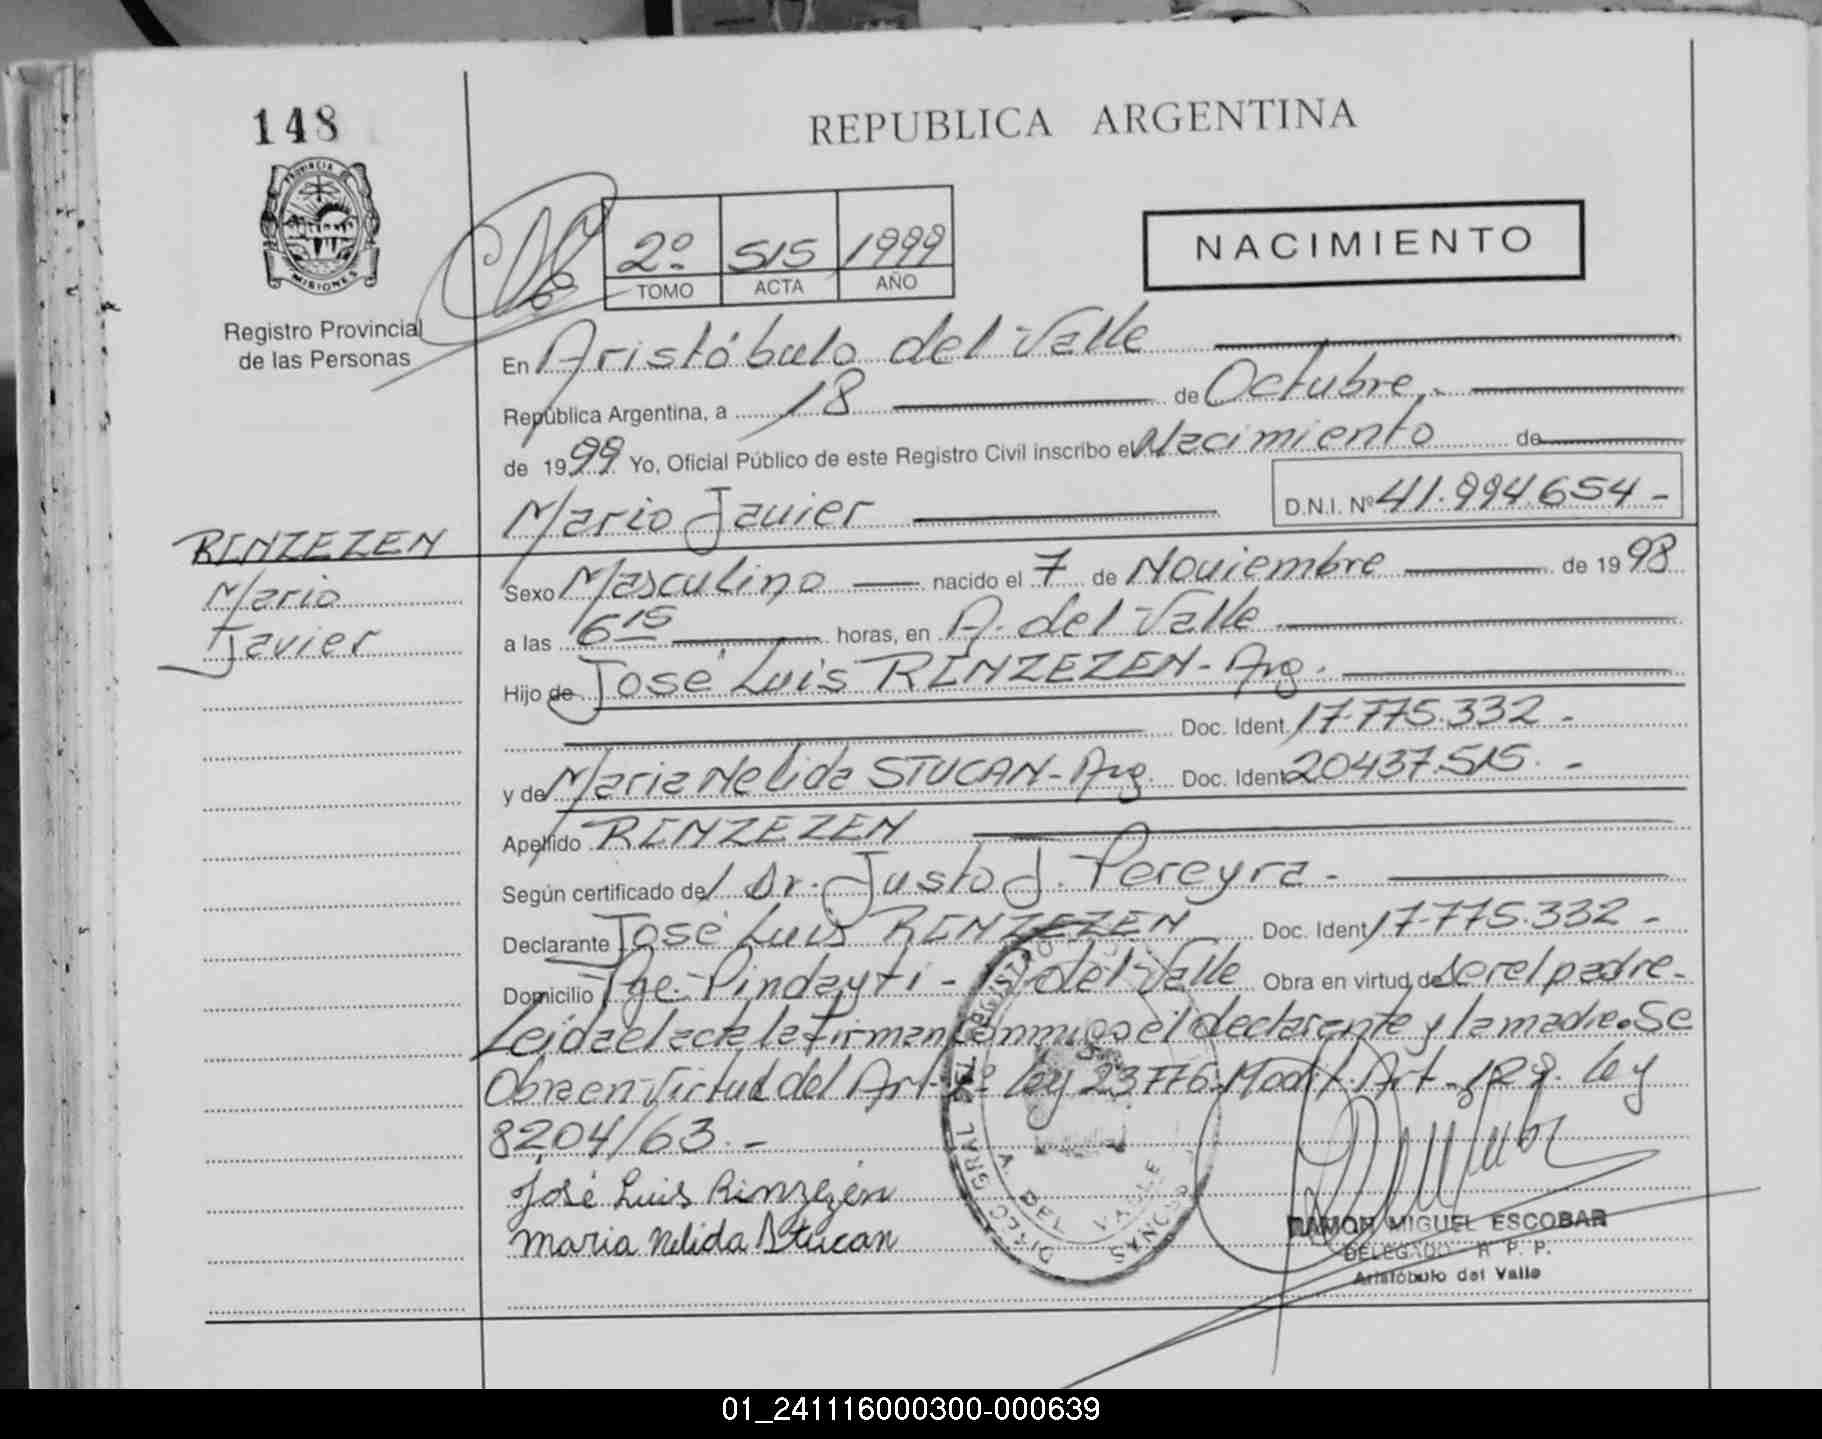 148
REPUBLICA ARGENTINA
PROVINCIA DE
MISIONES
2º 515 1999
TOMO ACTA AÑO
NACIMIENTO
Registro Provincial
de las Personas
En Aristóbulo del Valle
República Argentina, a 18 de Octubre.-
de 1999 Yo, Oficial Público de este Registro Civil inscribo el Nacimiento de
Mario Javier D.N.I. Nº 41.994.654-
RINZEZEN
Mario
Javier
Sexo Masculino nacido el 7 de Noviembre de 1998
a las 6 15 horas, en A. del Valle
Hijo de José Luis RINZEZEN- Arg.
Doc. Ident. 17.775.332-
y de Maria Nelida STUCAN- Arg. Doc. Ident. 20437.515.-
Apellido RINZEZEN
Según certificado del Dr. Justo J. Pereyra-
Declarante José Luis RINZEZEN Doc. Ident. 17.775.332-
Domicilio Pje. Pindayti - A. del Valle Obra en virtud de ser el padre-
Leida el acta la firman conmigo el declarante y la madre. Se
Obra en Virtud del Art. 1º ley 23776. Modif. Art. 29. ley
8204/63.-
José Luis Rinzezen
maria Nelida Stucan
DIREC. GRAL. DEL REGISTRO
A. DEL VALLE
RAMON MIGUEL ESCOBAR
DELEGADO R. P. P.
Aristóbulo del Valle
01_241116000300-000639